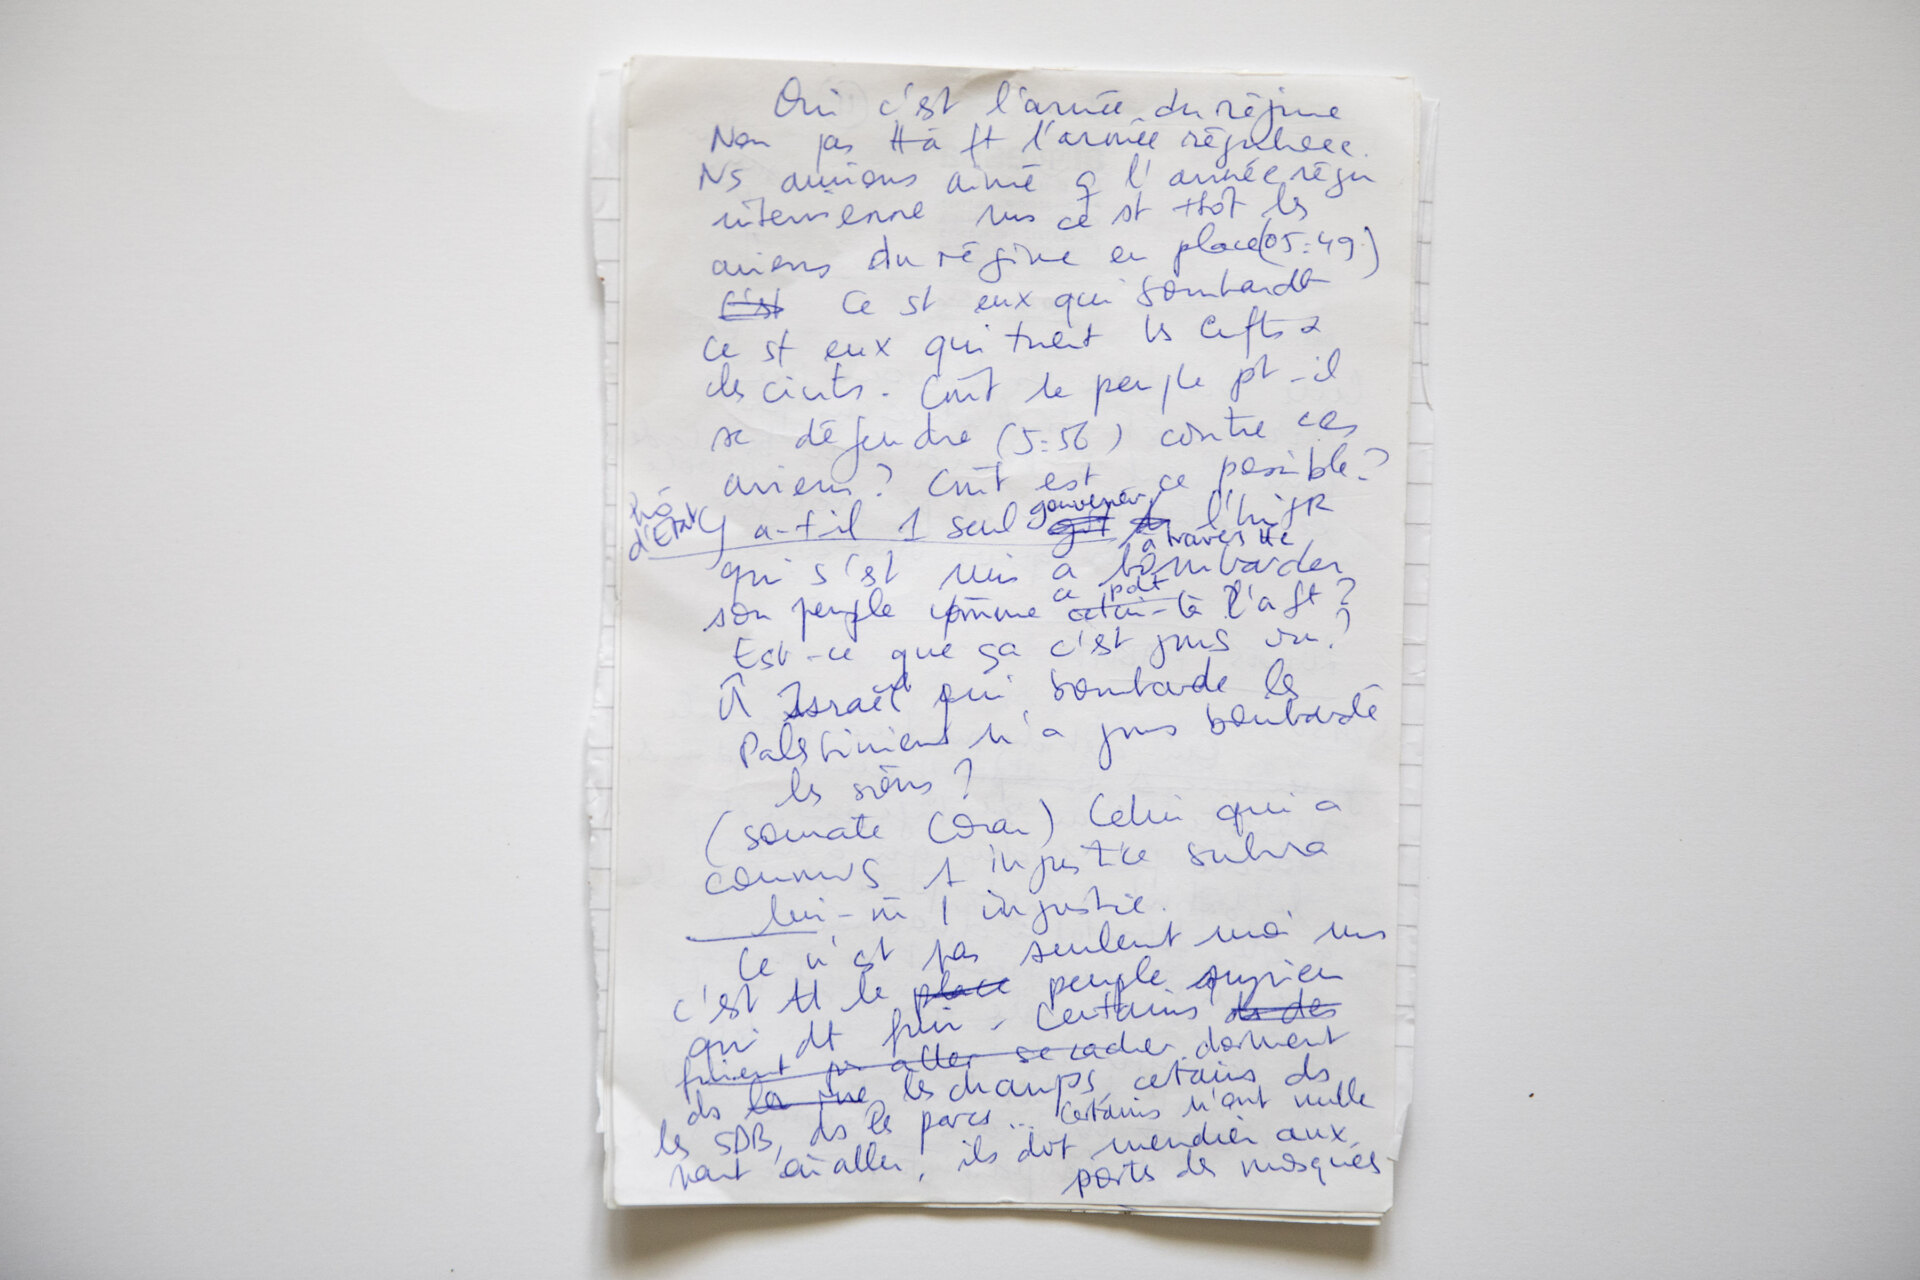 Oui c'est l'armée du régime
Non pas tt à ft l'armée régulière.
Ns aurions aimé q l'armée régu
intervienne ms ce st ttôt les
avions du régime en place (05:49)
c'est Ce st eux qui bombardt
Ce st eux qui tuent ls enfts &
des civils. Cmt le peuple pt-il
se défendre (5:56) contre ces
avions? Cmt est ce possible?
d'Etat Y a-t-il 1 seul gouverneur
à travers tte l'hist R
qui s'est mis à bombarder
son peuple comme ce pdt celui-là l'a ft?
Est-ce que ça c'est jms vu?
m̂ Israël qui bombarde les
Palestiniens n'a jms bombardé
les siens?
(sourate Coran) Celui qui a
commis 1 injustice subira
lui-m̂ 1 injustice.
Ce n'est pas seulemt moi ms
c'est tt le place peuple syrien
qui dt fuir. Certains ds des
fuient pr aller se cacher dorment
ds la rue les champs, certains ds
les SDB, ds les parcs... Certains n'ont nulle
part où aller, ils doivt mendier aux
portes des mosquées